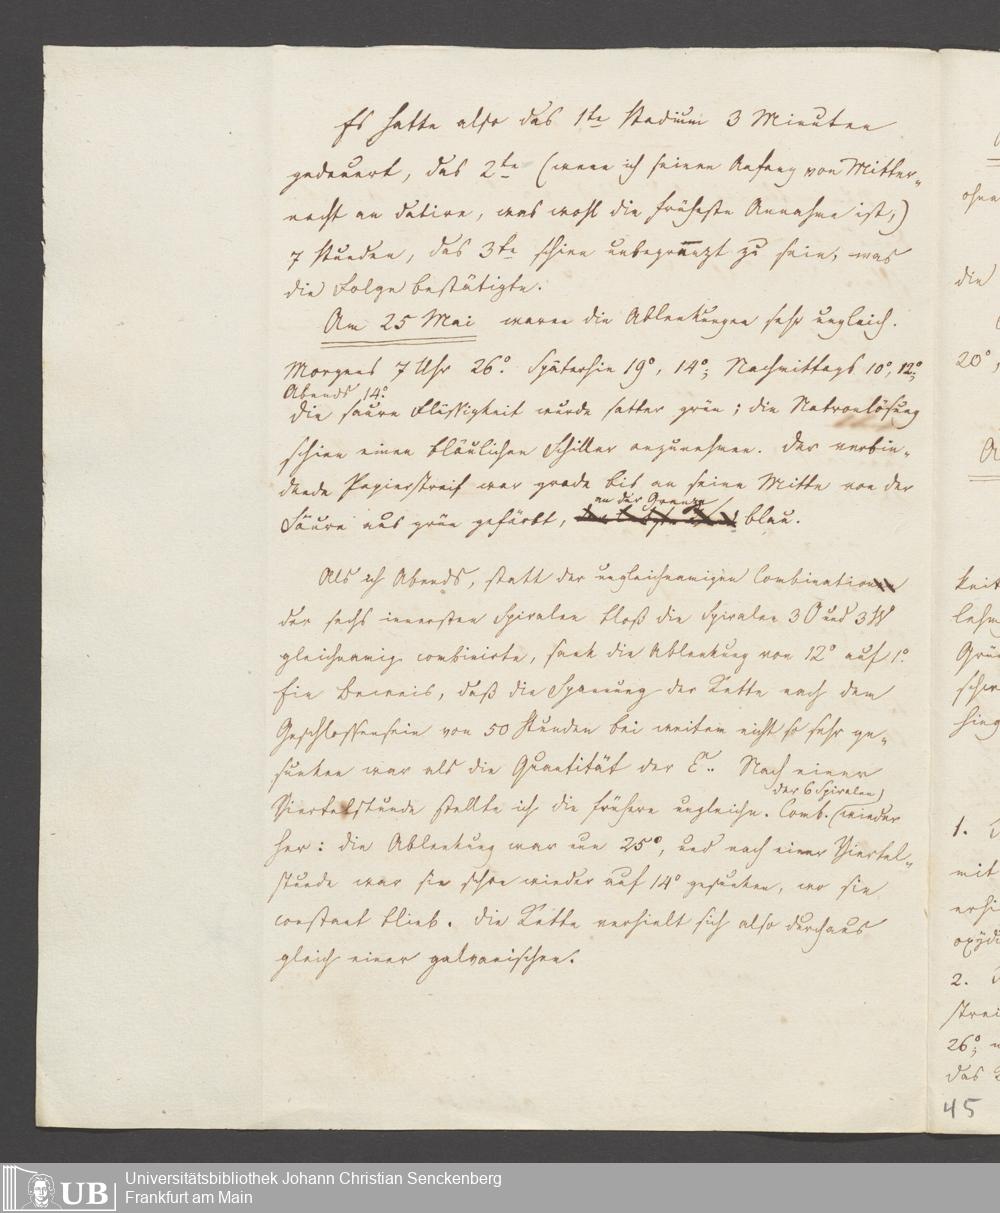 Es hatte also das 1te Stadium 3 Minuten
gedauert, das 2te (wenn ich seinen Anfang von Mitter„
nacht an datire, was wohl die früheste Annahme ist,)
7 Stunden, das 3te schien unbegränzt zu sein, was
die Folge bestätigte.
Am 25 Mai waren die Ablenkungen sehr ungleich.
Morgens 7 Uhr 26°. Späterhin 19°, 14°; Nachmittags 10°, 12°;
Abends 14°.
Die saure Flüssigkeit wurde satter grün; die Natronlösung
schien einen bläulichen Schiller anzunehmen. Der verbin-
dende Papierstreif war grade bis an seine Mitte von der
an der Grenze
Säure aus grün gefärbt, blau.
Als ich Abends, statt der ungleichnamigen Combination
der sechs innersten Spiralen bloß die Spiralen 3 O und 3 W
gleichnamig combinirte, sank die Ablenkung von 12° auf 1°.
Ein Beweis, daß die Spannung der Kette nach dem
Geschlossensein von 50 Stunden bei weitem nicht so sehr ge„
sunken war als die Quantität der E.. Nach einer
der 6 Spiralen
Viertelstunde stellte ich die frühere ungleichn. Comb. wieder
her: die Ablenkung war nun 25°, und nach einer Viertel„
stunde war sie schon wieder auf 14° gesunken, wo sie
constant blieb. Die Kette verhielt sich also durchaus
gleich einer galvanischen.
ohne
die
20°,
A
keit
lehm
Grün
schw
hing
1. D
mit
erhi
oxydi
2. D
strei
26°;
das
45
UB
Universitätsbibliothek Johann Christian Senckenberg
Frankfurt am Main